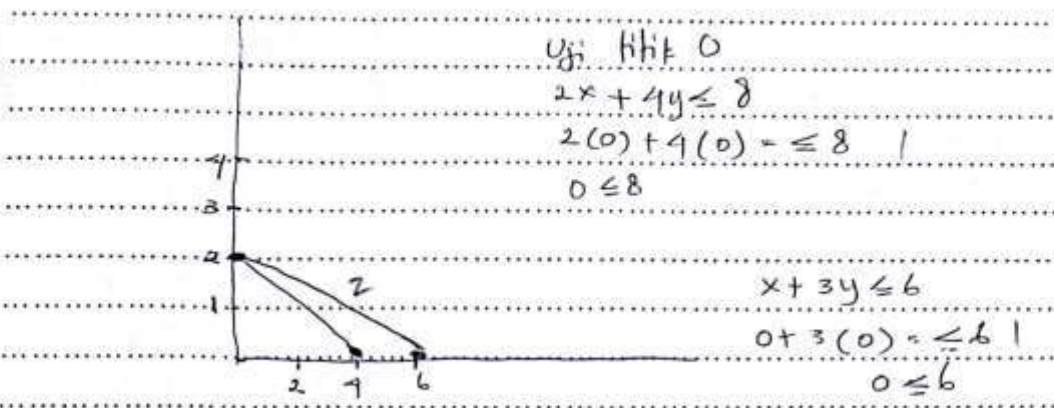 Uji titik 0
2x + 4y ≤ 8
2(0) + 4(0) = ≤ 8
0 ≤ 8
4
3
2
1
2
2 4 6
x + 3y ≤ 6
0 + 3(0) = ≤ 6
0 ≤ 6